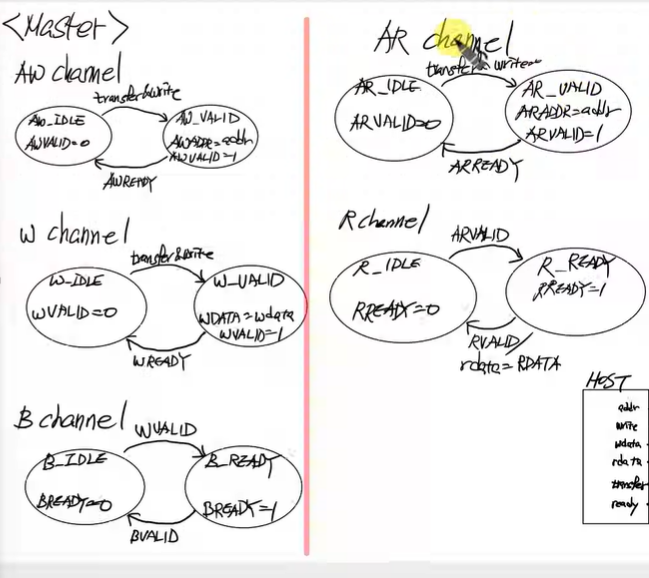 <Master>
AW channel
transfer&write
AW_IDLE
AWVALID=0
AW_VALID
AWADDR=addr
AWVALID=1
AWREADY
W channel
transfer&write
W_IDLE
WVALID=0
W_VALID
WDATA=wdata
WVALID=1
WREADY
B channel
WVALID
B_IDLE
BREADY=0
B_READY
BREADY=1
BVALID
AR channel
transfer& write=
AR_IDLE
ARVALID=0
AR_VALID
ARADDR=addr
ARVALID=1
ARREADY
R channel
ARVALID
R_IDLE
RREADY=0
R_READY
RREADY=1
RVALID/
rdata=RDATA
HOST
addr
write
wdata
rdata
transfer
ready